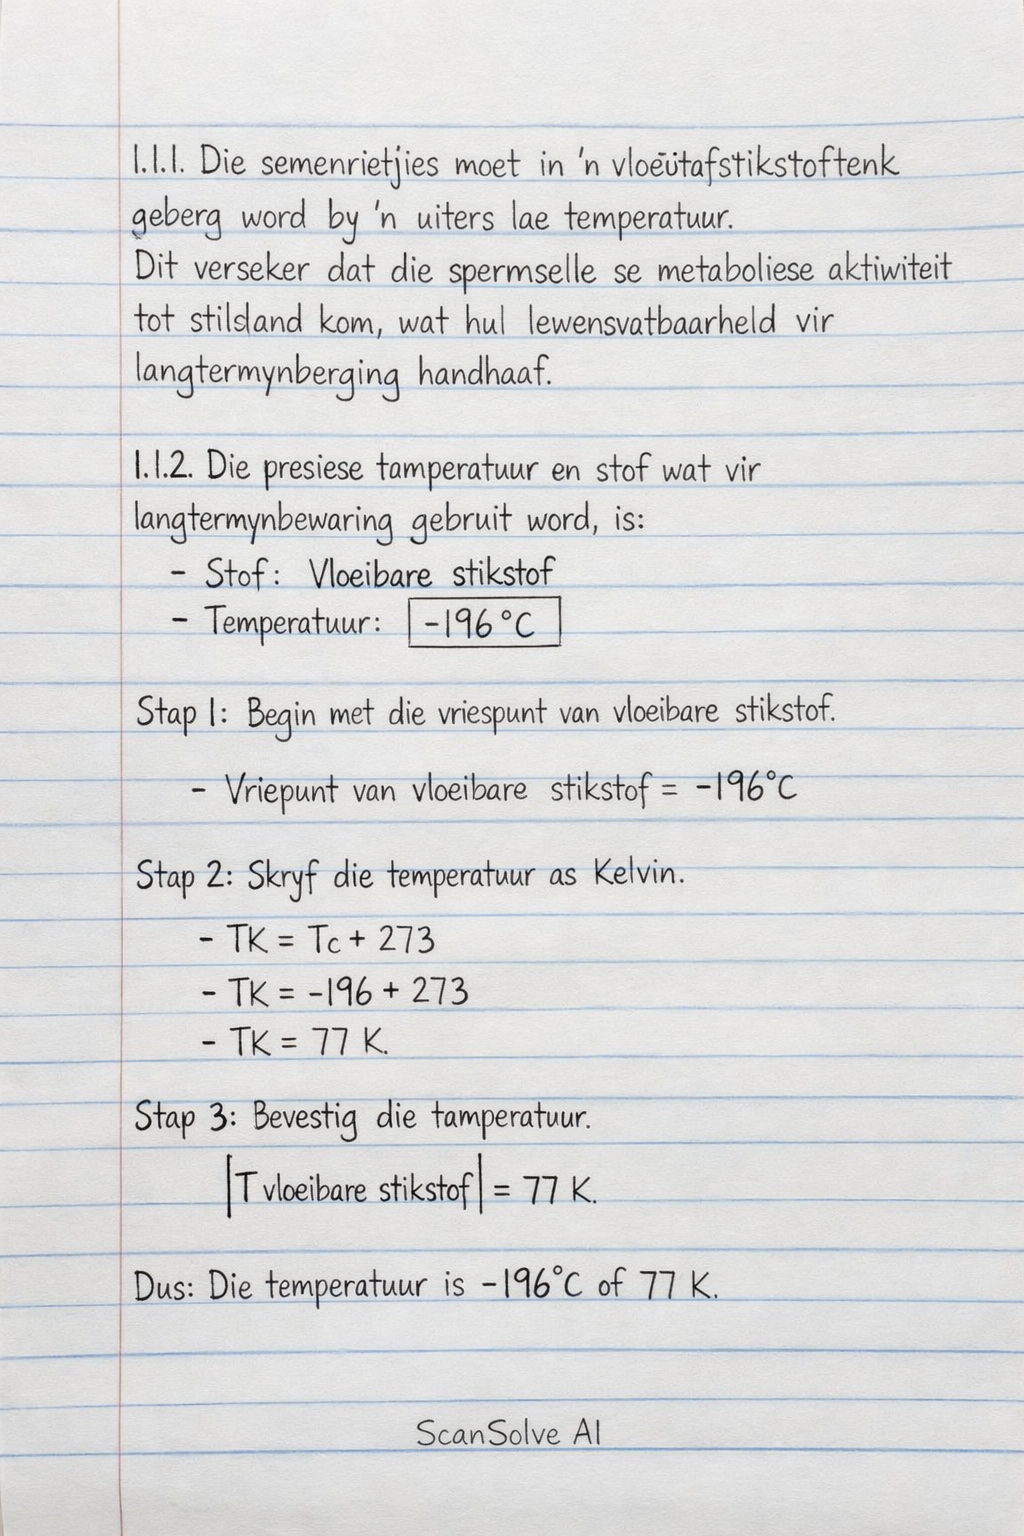 1.1.1. Die semenrietjies moet in 'n vloeütafstikstoftenk
geberg word by 'n uiters lae temperatuur.
Dit verseker dat die spermselle se metaboliese aktiwiteit
tot stilsland kom, wat hul lewensvatbaarheld vir
langtermynberging handhaaf.
1.1.2. Die presiese tamperatuur en stof wat vir
langtermynbewaring gebruit word, is:
- Stof: Vloeibare stikstof
- Temperatuur: -196°C
Stap 1: Begin met die vriespunt van vloeibare stikstof.
- Vriepunt van vloeibare stikstof = -196°C
Stap 2: Skryf die temperatuur as Kelvin.
- TK = Tc + 273
- TK = -196 + 273
- TK = 77 K.
Stap 3: Bevestig die tamperatuur.
|T vloeibare stikstof| = 77 K.
Dus: Die temperatuur is -196°C of 77 K.
ScanSolve AI